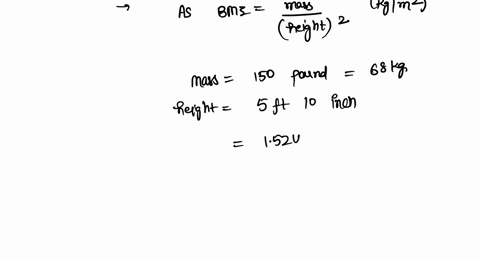 → As BMI = mass / (height)² (kg/m²)
mass = 150 pound = 68 kg
height = 5 ft 10 inch
= 1.524